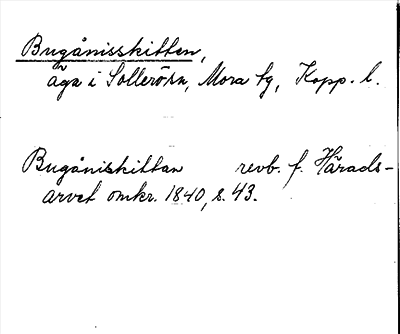 Bugånisskitten,
äga i Sollerö sn, Mora tg, Kopp. l.
Bugåniskittan revb. f. Härads-
arvet omkr. 1840, s. 43.